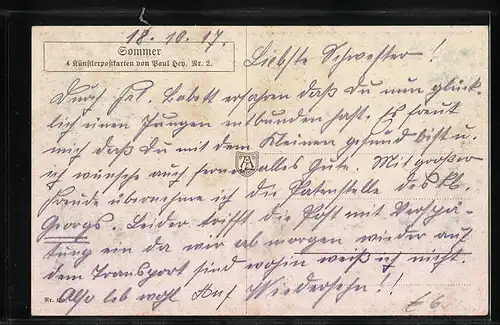 18.10.17.
Sommer
4 Künstlerpostkarten von Paul Hey. Nr. 2.
Liebste Schwester!
Durch Frl. Babett erfahren daß Du nun glück-
lich einen Jungen entbunden hast. Es freut
mich daß Du mit dem Kleinen gesund bist u.
ich wünsche auch ferner alles Gute. Mit großer
Freude übernehme ich die Patenstelle des kl.
Georgs. Leider trifft die Post mit Verspä-
tung ein da wir ab morgen wieder auf
dem Transport sind wohin weiß ich nicht.
Also leb wohl Auf Wiedersehn!!